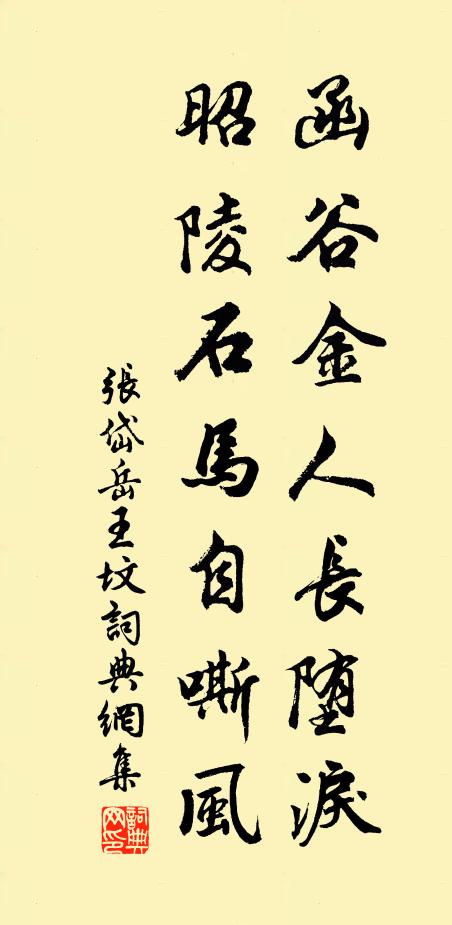 函谷金人長堕淚
昭陵石馬自嘶風
張岱岳王坟詞典網集
詞典网印